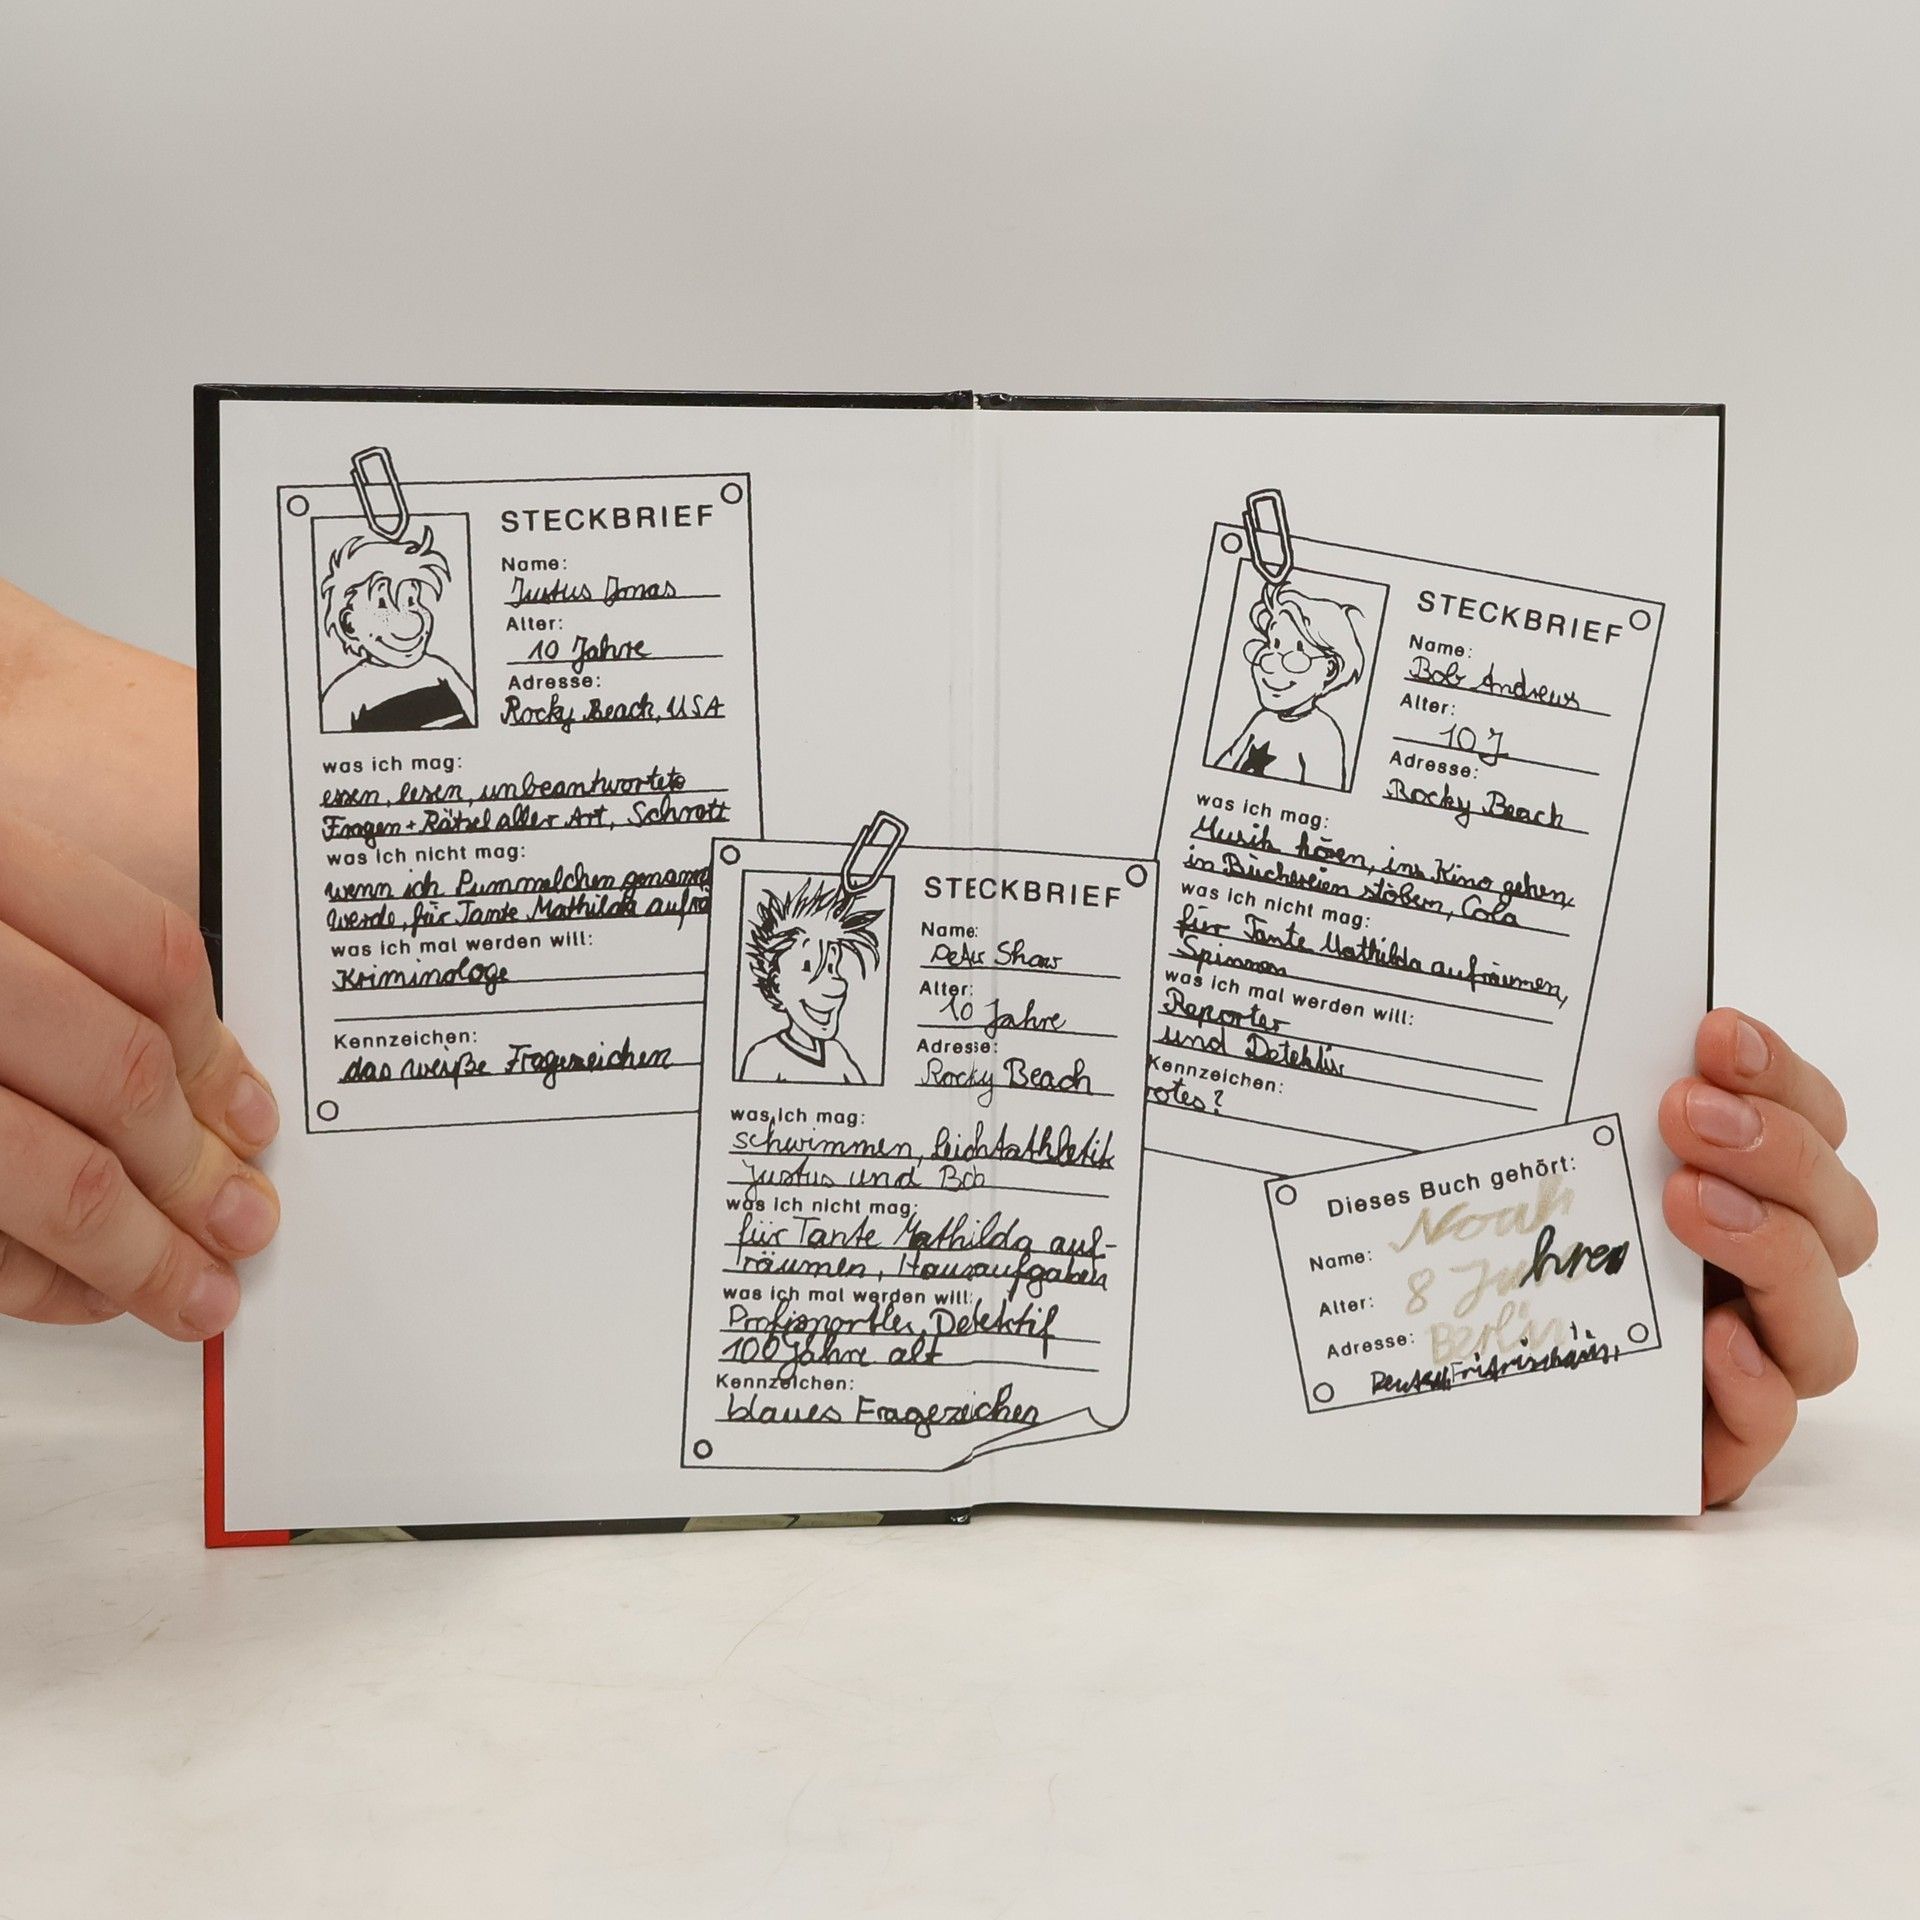 STECKBRIEF
Name:
Justus Jonas
Alter:
10 Jahre
Adresse:
Rocky Beach, USA
was ich mag:
essen, lesen, unbeantwortete
Fragen + Rätsel aller Art, Schrott
was ich nicht mag:
wenn ich Pummelchen genannt
werde, für Tante Mathilda aufrä
was ich mal werden will:
Kriminologe
Kennzeichen:
das weiße Fragezeichen
STECKBRIEF
Name:
Peter Shaw
Alter:
10 Jahre
Adresse:
Rocky Beach
was ich mag:
schwimmen, Leichtathletik
Justus und Bob
was ich nicht mag:
für Tante Mathilda auf-
räumen, Hausaufgaben
was ich mal werden will:
Profisportler, Detektif
100 Jahre alt
Kennzeichen:
blaues Fragezeichen
STECKBRIEF
Name:
Bob Andrews
Alter:
10 J
Adresse:
Rocky Beach
was ich mag:
Musik hören, ins Kino gehen,
in Büchereien stöbern, Cola
was ich nicht mag:
für Tante Mathilda aufräumen,
Spinnen
was ich mal werden will:
Reporter
und Detektiv
Kennzeichen:
rotes?
Dieses Buch gehört:
Name: Noah
Alter: 8 Jahren
Adresse: Berlin